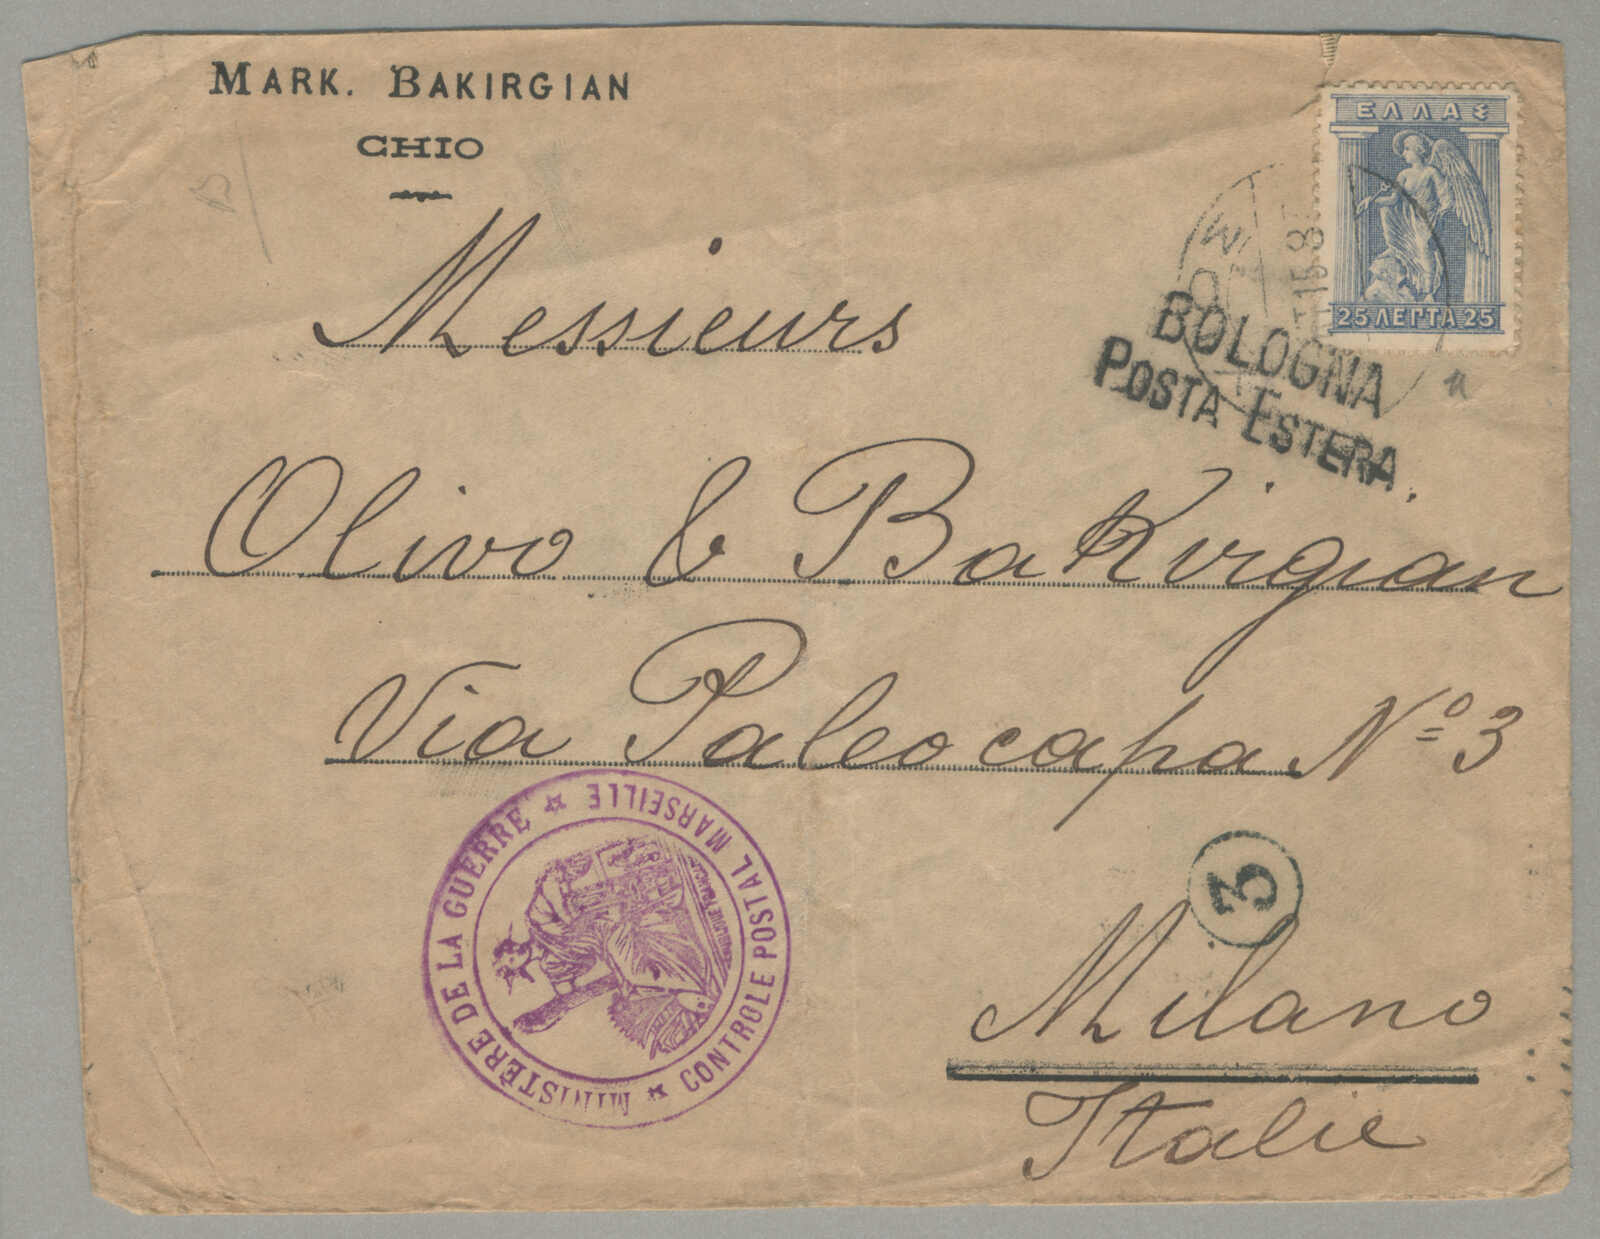 MARK. BAKIRGIAN
CHIO
ΕΛΛΑΣ
25 ΛΕΠΤΑ 25
BOLOGNA
POSTA ESTERA.
Messieurs
Olivo & Bakirgian
Via Paleocapa Nº 3
Milano
Italie
3
MINISTÈRE DE LA GUERRE
CONTROLE POSTAL MARSEILLE